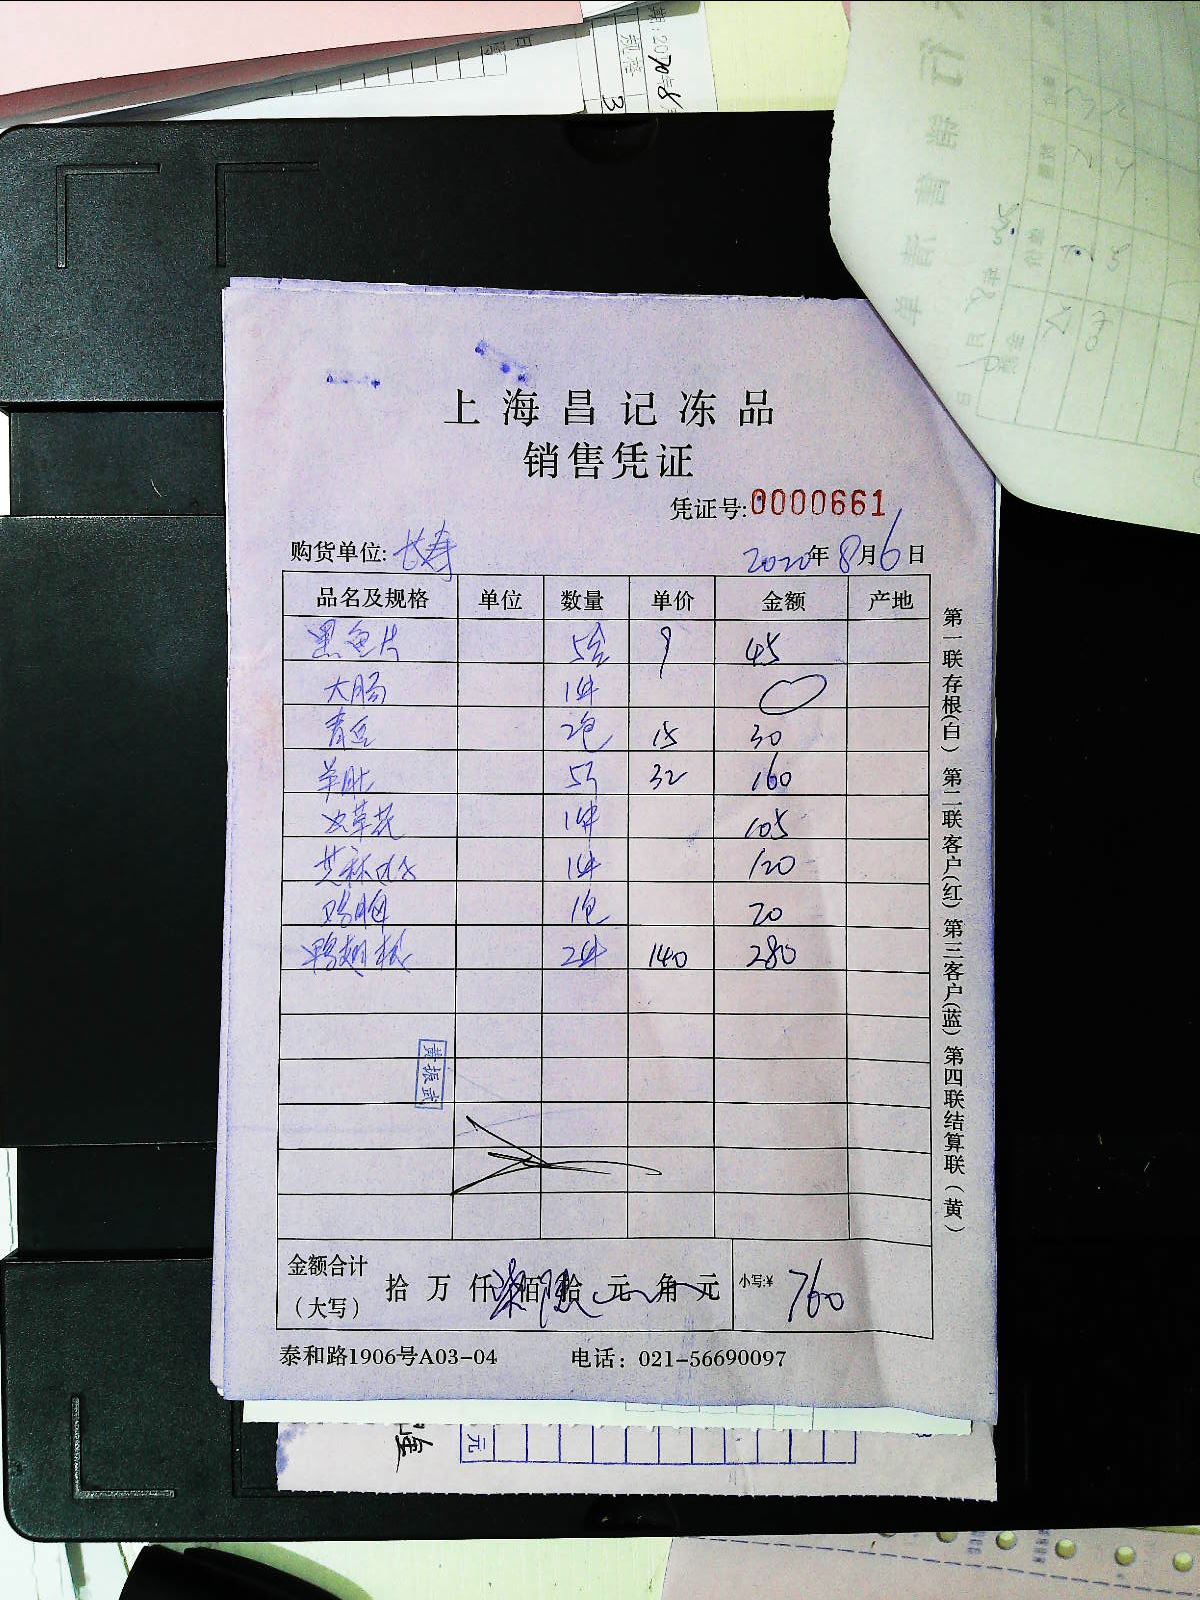 上海昌记冻品
销售凭证
凭证号:0000661
购货单位: 长寿 2020年8月6日
品名及规格 单位 数量 单价 金额 产地
黑鱼片 5盒 9 45
大肠 1件
青豆 2包 15 30
羊肚 5斤 32 160
虫草花 1件 105
芝麻 1件 120
鸡胸 1包 20
鸭翅根 2件 140 280
黄振武
金额合计（大写） 拾 万 仟 柒佰 陆拾 元 角 元 小写:¥ 760
泰和路1906号A03-04 电话：021-56690097
第一联存根(白) 第二联客户(红) 第三客户(蓝) 第四联结算联（黄）
元